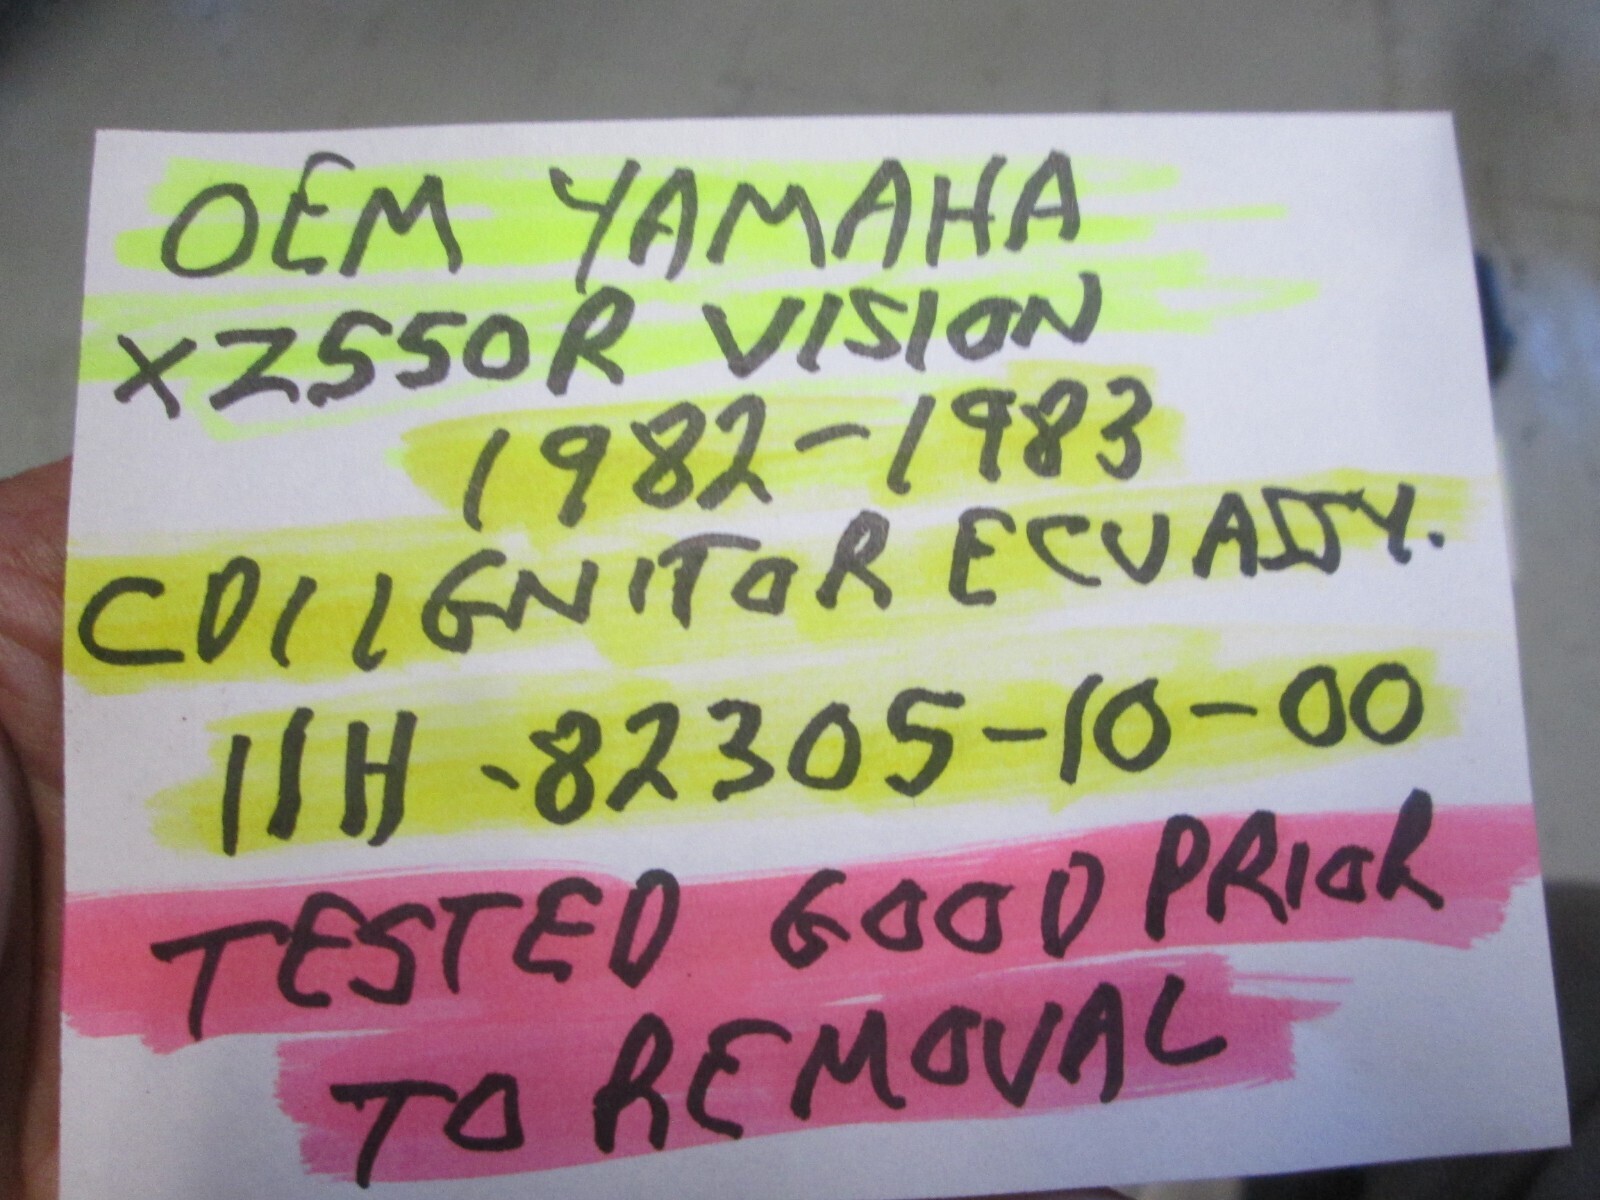 OEM YAMAHA
XZ550R VISION
1982-1983
CDI IGNITOR ECU ASSY.
11H-82305-10-00
TESTED GOOD PRIOR
TO REMOVAL